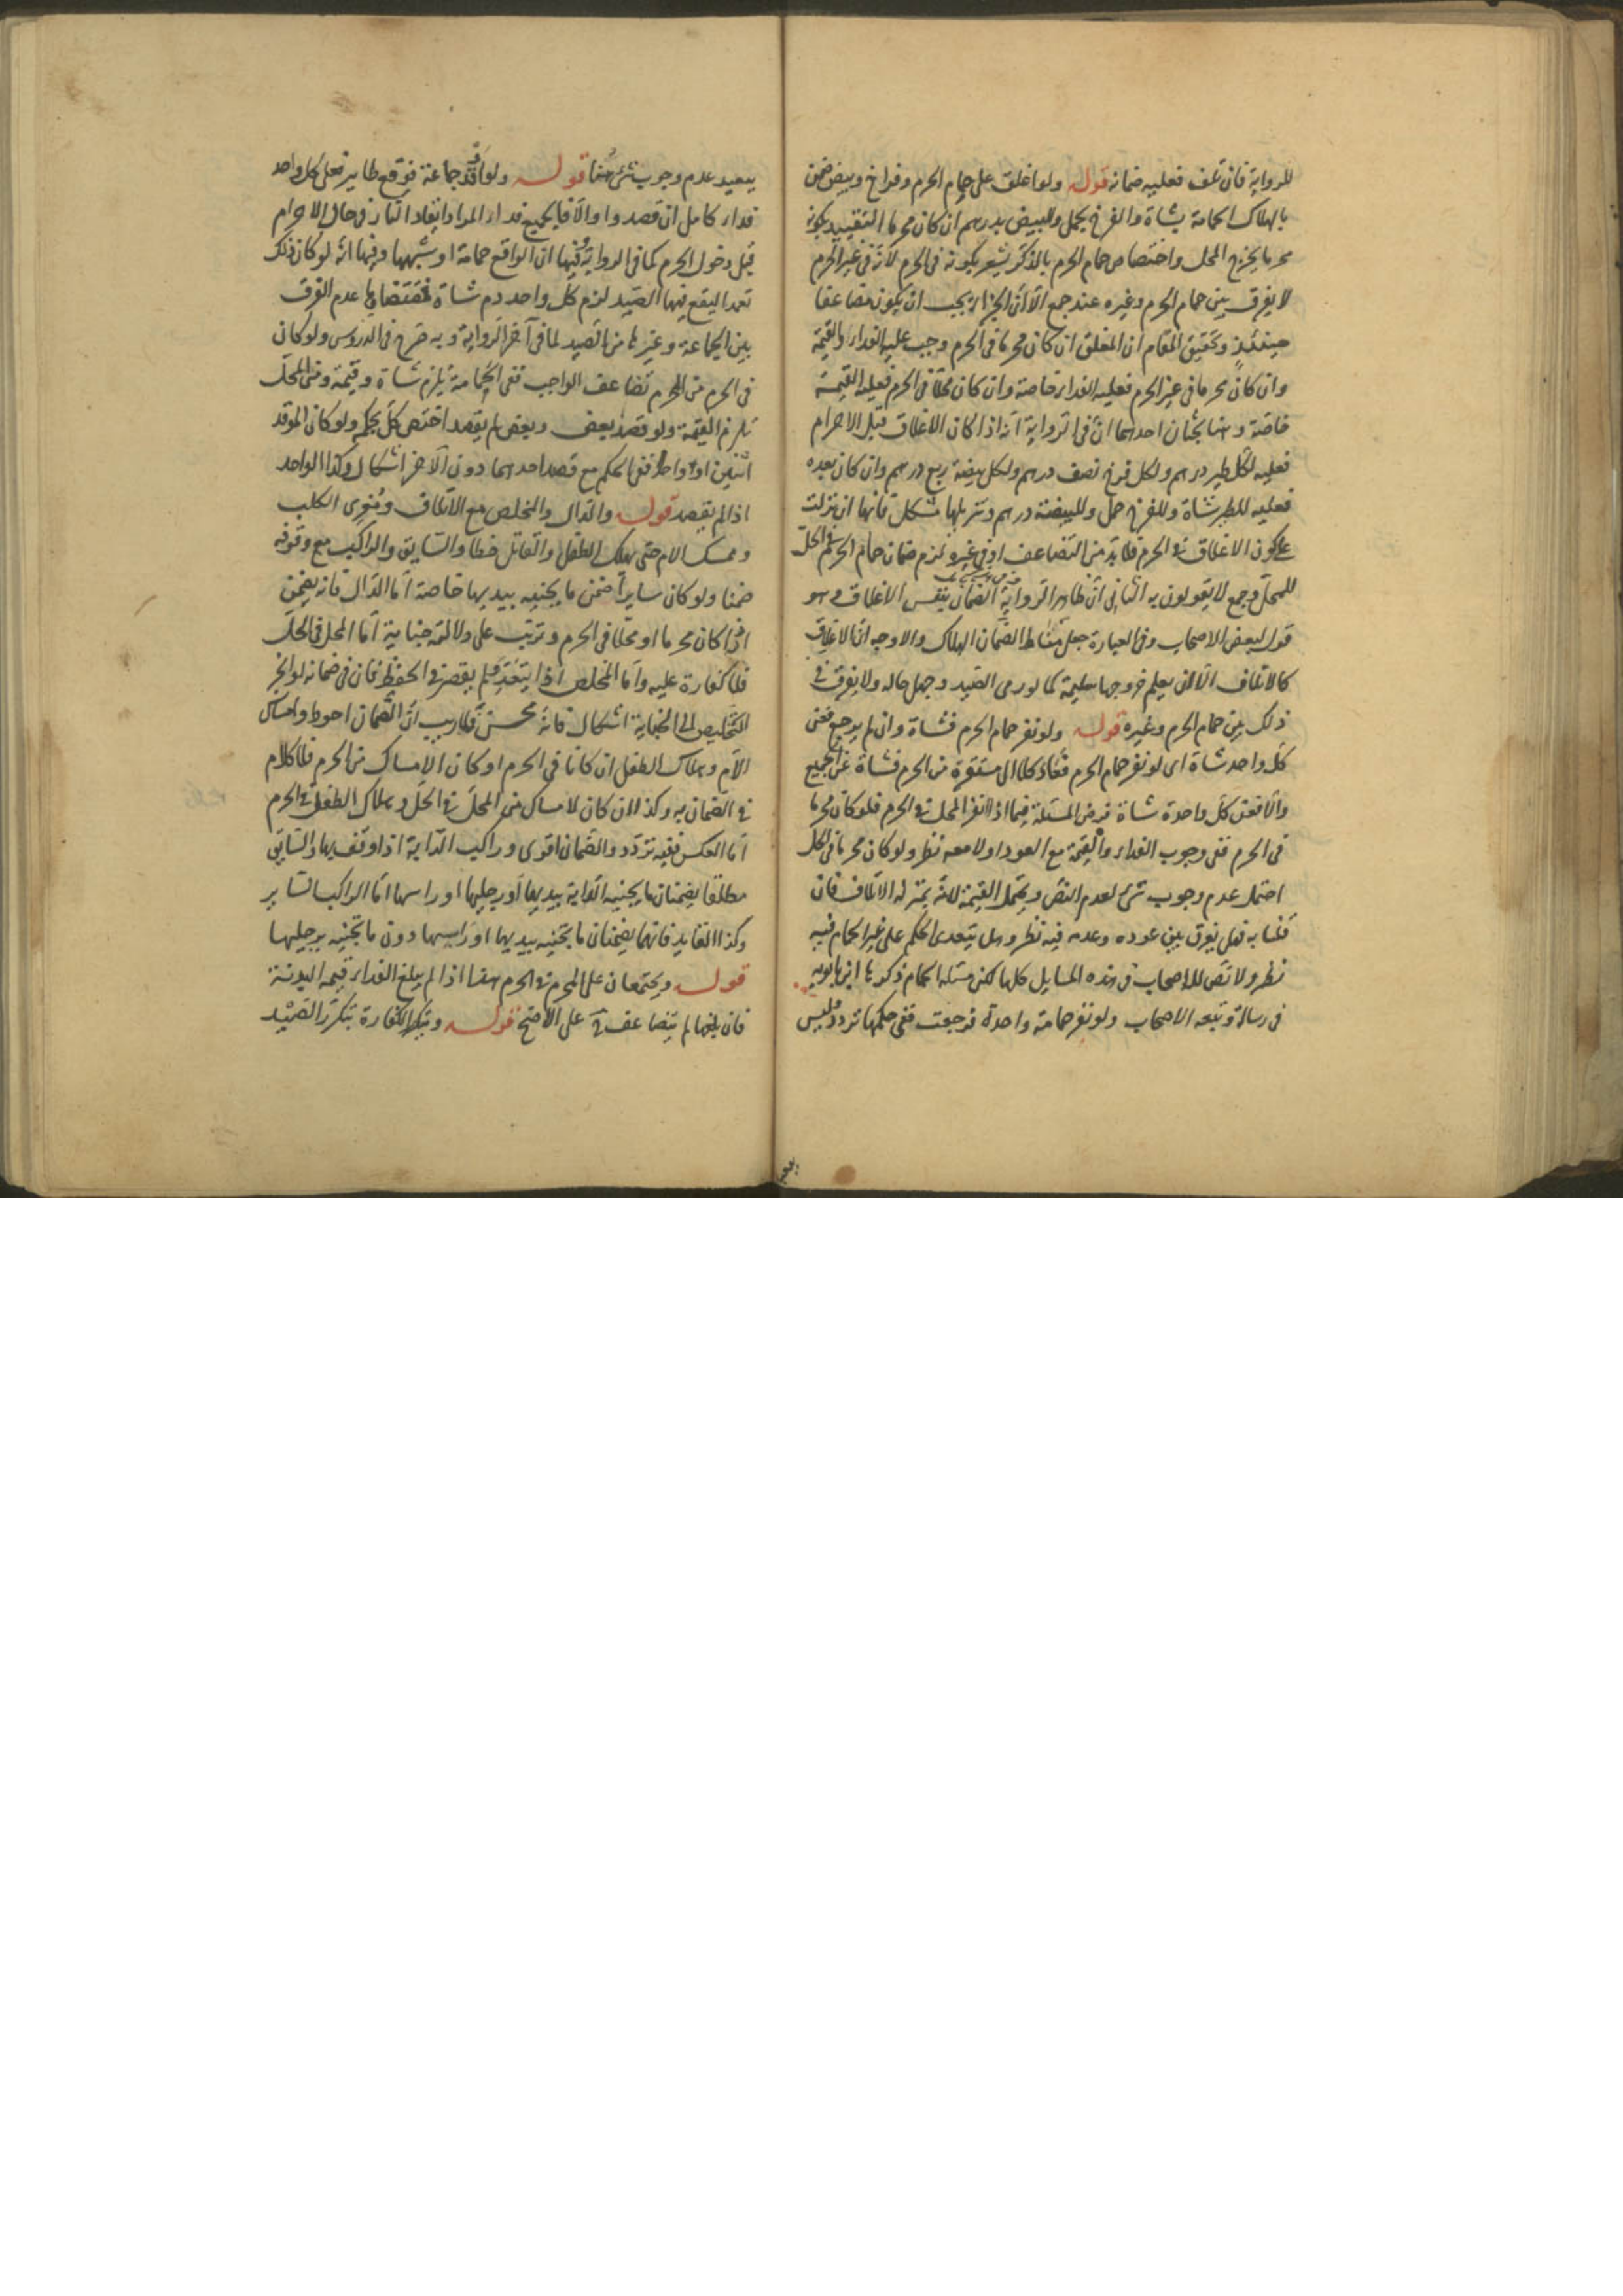 للرواية فان تلف فعليه ضمانه قوله ولو اغلق على حمام الحرم وفراخ وبيض ضمن
بالهلاك الحمامة بشاة والفرخ بحمل والبيض بدرهم ان كان محرما التقييد بكونه
محرما يخرج المحل واختصاص حمام الحرم بالذكر يشعر بكونه في الحرم لانه في غير الحرم
لا يفرق بين حمام الحرم وغيره عند جمع الا ان الجزاء يجب ان يكون متضاعفا
حينئذ وتحقيق المقام ان المغلق ان كان محرما في الحرم وجب عليه الفداء والقيمة
وان كان محرما في غير الحرم فعليه الفداء خاصة وان كان محلا في الحرم فعليه القيمة
خاصة وهنا بحثان احدهما ان في الرواية انه اذا كان الاغلاق قبل الاحرام
فعليه لكل طير درهم ولكل فرخ نصف درهم ولكل بيضة ربع درهم وان كان بعده
فعليه للطير شاة وللفرخ حمل وللبيضة درهم وتنزيلها مشكل فانها ان نزلت
على كون الاغلاق في الحرم فلا بد من التضاعف او في غيره لزم ضمان حمام الحرم في الحل
للمحل وجمع لا يقولون به الثاني ان ظاهر الرواية الضمان بنفس الاغلاق وهو
قول لبعض الاصحاب وفي العبارة جعل مناط الضمان الهلاك والاوجه ان الاغلاق
كالاتلاف الا ان يعلم خروجها سليمة كما لو رمى الصيد وجهل حاله ولا يفرق في
ذلك بين حمام الحرم وغيره قوله ولو نفر حمام الحرم فشاة وان لم يرجع فعن
كل واحد شاة اي لو نفر حمام الحرم فعاد كله الى مستقره من الحرم فشاة عن الجميع
والا فعن كل واحدة شاة فرض المسئلة فيما اذا نفر المحل في الحرم فلو كان محرما
في الحرم ففي وجوب الفداء والقيمة مع العود او لا معه نظر ولو كان محرما في الحل
احتمل عدم وجوب شئ لعدم النص ويحتمل القيمة لانه بمنزلة الاتلاف فان
قلنا به فهل يفرق بين عوده وعدمه فيه نظر وهل يتعدى الحكم على غير الحمام فيه
نظر ولا نص للاصحاب في هذه المسايل كلها لكن مسئلة الحمام ذكرها ابن بابويه
في رسالة وتبعه الاصحاب ولو نفر حمامة واحدة فرجعت ففي حكمها تردد وليس
ببعيد عدم وجوب شئ هنا قوله ولو اوقد جماعة فوقع طاير فعلى كل واحد
فداء كامل ان قصدوا والا فالجميع فداء المراد ايقاد النار في حال الاحرام
قبل دخول الحرم كما في الرواية وفيها ان الواقع حمامة او شبهها وفيها انه لو كان ذلك
تعمدا ليقع فيها الصيد لزم كل واحد دم شاة فمقتضاها عدم الفرق
بين الحمامة وغيرها من الصيد لما في آخر الرواية وبه صرح في الدروس ولو كان
في الحرم من المحرم تضاعف الواجب ففي الحمامة يلزم شاة وقيمة ومن المحل
تلزم القيمة ولو قصد بعض وبعض لم يقصد اختص كل بحكمه ولو كان الموقد
اثنين او واحدا ففي الحكم مع قصد احدهما دون الآخر اشكال وكذا الواحد
اذا لم يقصد قوله والدال والمخلص مع الاتلاف ومغرى الكلب
وممسك الام حتى يهلك الطفل والقاتل خطأ والسايق والراكب مع وقوفه
ضمنا ولو كان سايرا ضمن ما يجنيه بيديها خاصة اما الدال فانه يضمن
اذا كان محرما او محلا في الحرم وترتب على دلالته جناية اما المحل في الحل
فلا كفارة عليه واما المخلص اذا لم يتعد ولم يقصر في الحفظ فان في ضمانه لو انجر
التخليص الى الجناية اشكال فانه محسن ولا ريب ان الضمان احوط وامساك
الام وهلاك الطفل ان كانا في الحرم او كان الامساك من الحرم فلا كلام
في الضمان به وكذا ان كان الامساك من المحل في الحل وهلاك الطفل في الحرم
اما العكس ففيه تردد والضمان اقوى وراكب الدابة اذا وقف بها والسايق
مطلقا يضمنان ما يجنيه الدابة بيديها او رجليها او راسها اما الراكب الساير
وكذا القايد فانهما يضمنان ما تجنيه بيديها او راسها دون ما تجنيه برجليها
قوله ويجتمعان على المحرم في الحرم هذا اذا لم يبلغ الفداء قيمة البدنة
فان بلغها لم يتضاعف على الاصح قوله وتتكرر الكفارة بتكرر الصيد